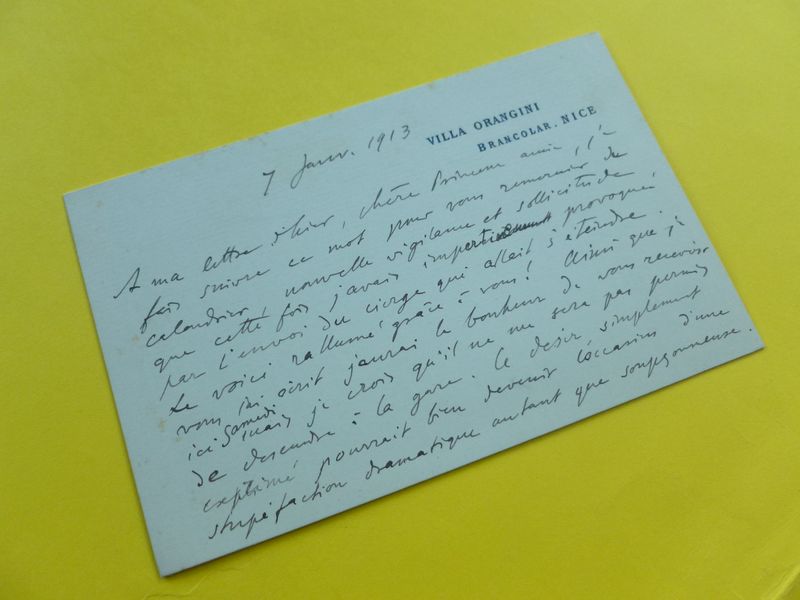 VILLA ORANGINI
BRANCOLAR. NICE
7 Janv. 1913
A ma lettre d'hier, chère Princesse amie, j'e
fais suivre ce mot pour vous remercier du
calendrier, nouvelle vigilance et sollicitude
que cette fois j'avais provoquée
par l'envoi du cierge qui allait s'éteindre.
Le voici rallumé grâce à vous! Ainsi que je
vous l'ai écrit j'aurai le bonheur de vous recevoir
ici samedi mais je crois qu'il ne me sera pas permis
de descendre à la gare. Ce désir, simplement
exprimé pourrait bien devenir l'occasion d'une
stupéfaction dramatique autant que soupçonneuse.